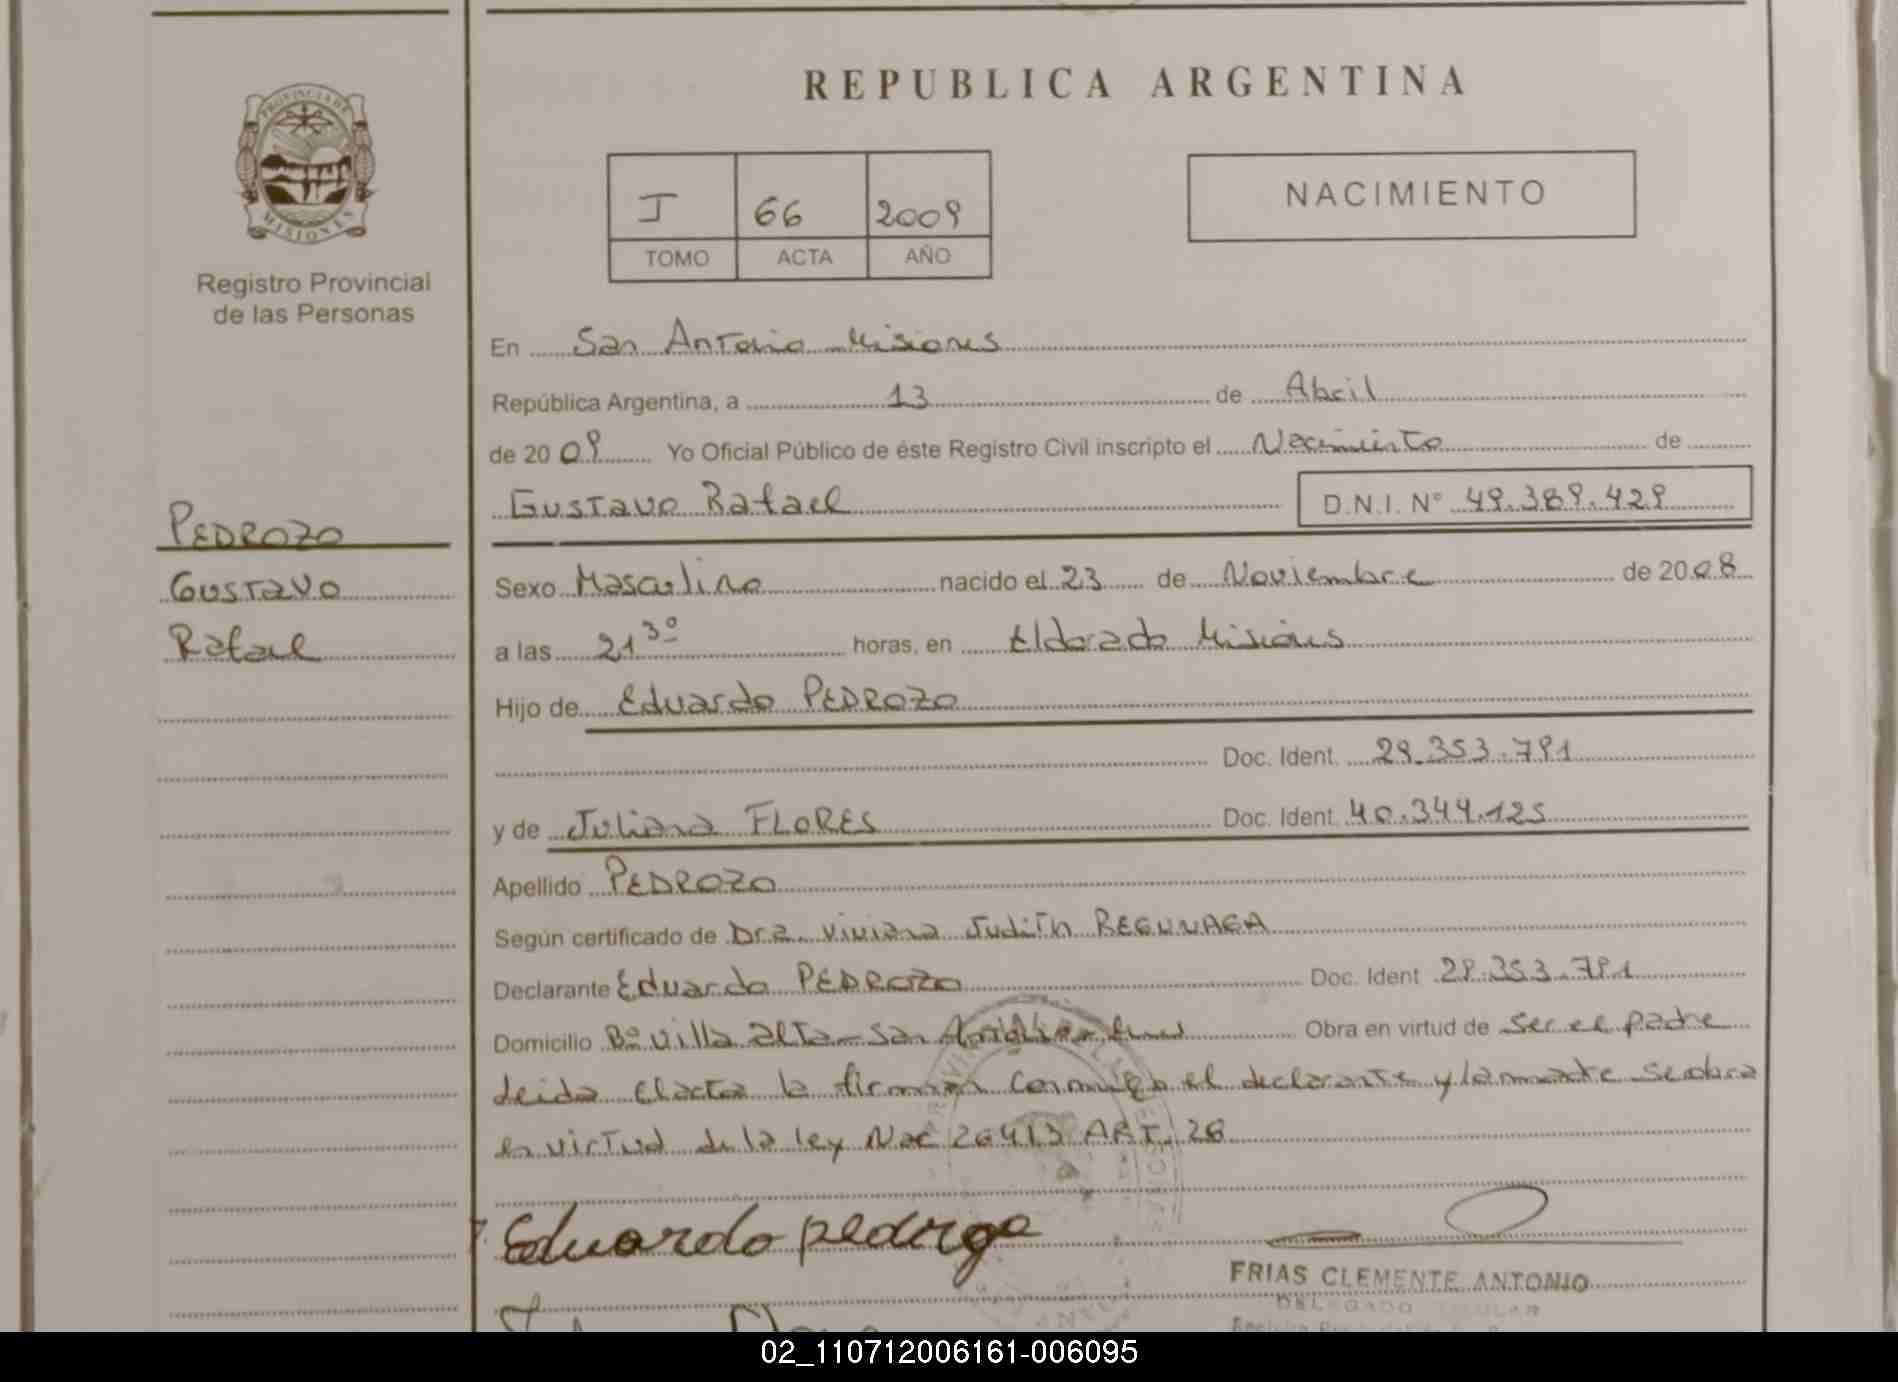 REPUBLICA ARGENTINA
PROVINCIA DE
MISIONES
Registro Provincial
de las Personas
I 66 2009
TOMO ACTA AÑO
NACIMIENTO
En San Antonio Misiones
República Argentina, a 13 de Abril
de 2009 Yo Oficial Público de éste Registro Civil inscripto el Nacimiento de
Gustavo Rafael D.N.I. Nº 49.389.429
PEDROZO
Gustavo
Rafael
Sexo Masculino nacido el 23 de Noviembre de 2008
a las 21 30 horas, en Eldorado Misiones
Hijo de Eduardo PEDROZO
Doc. Ident. 29.353.791
y de Juliana FLORES Doc. Ident. 40.344.125
Apellido PEDROZO
Según certificado de Dra. Viviana Judith REGUNAGA
Declarante Eduardo PEDROZO Doc. Ident 29.353.791
Domicilio Bº Villa Alta - San Antonio Obra en virtud de ser el padre
Leida el acta la firman conmigo el declarante y la madre se obra
en virtud de la ley Nac 26413 ART. 28
Eduardo pedrozo
FRIAS CLEMENTE ANTONIO
DELEGADO TITULAR
02_110712006161-006095